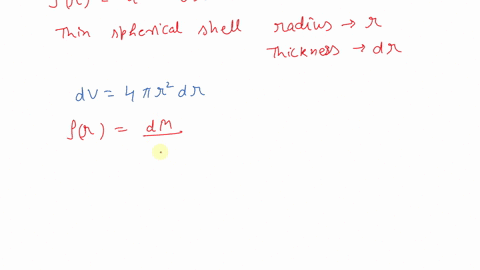 Thin spherical shell radius → r
Thickness → dr
dV = 4πr² dr
ρ(r) = dM